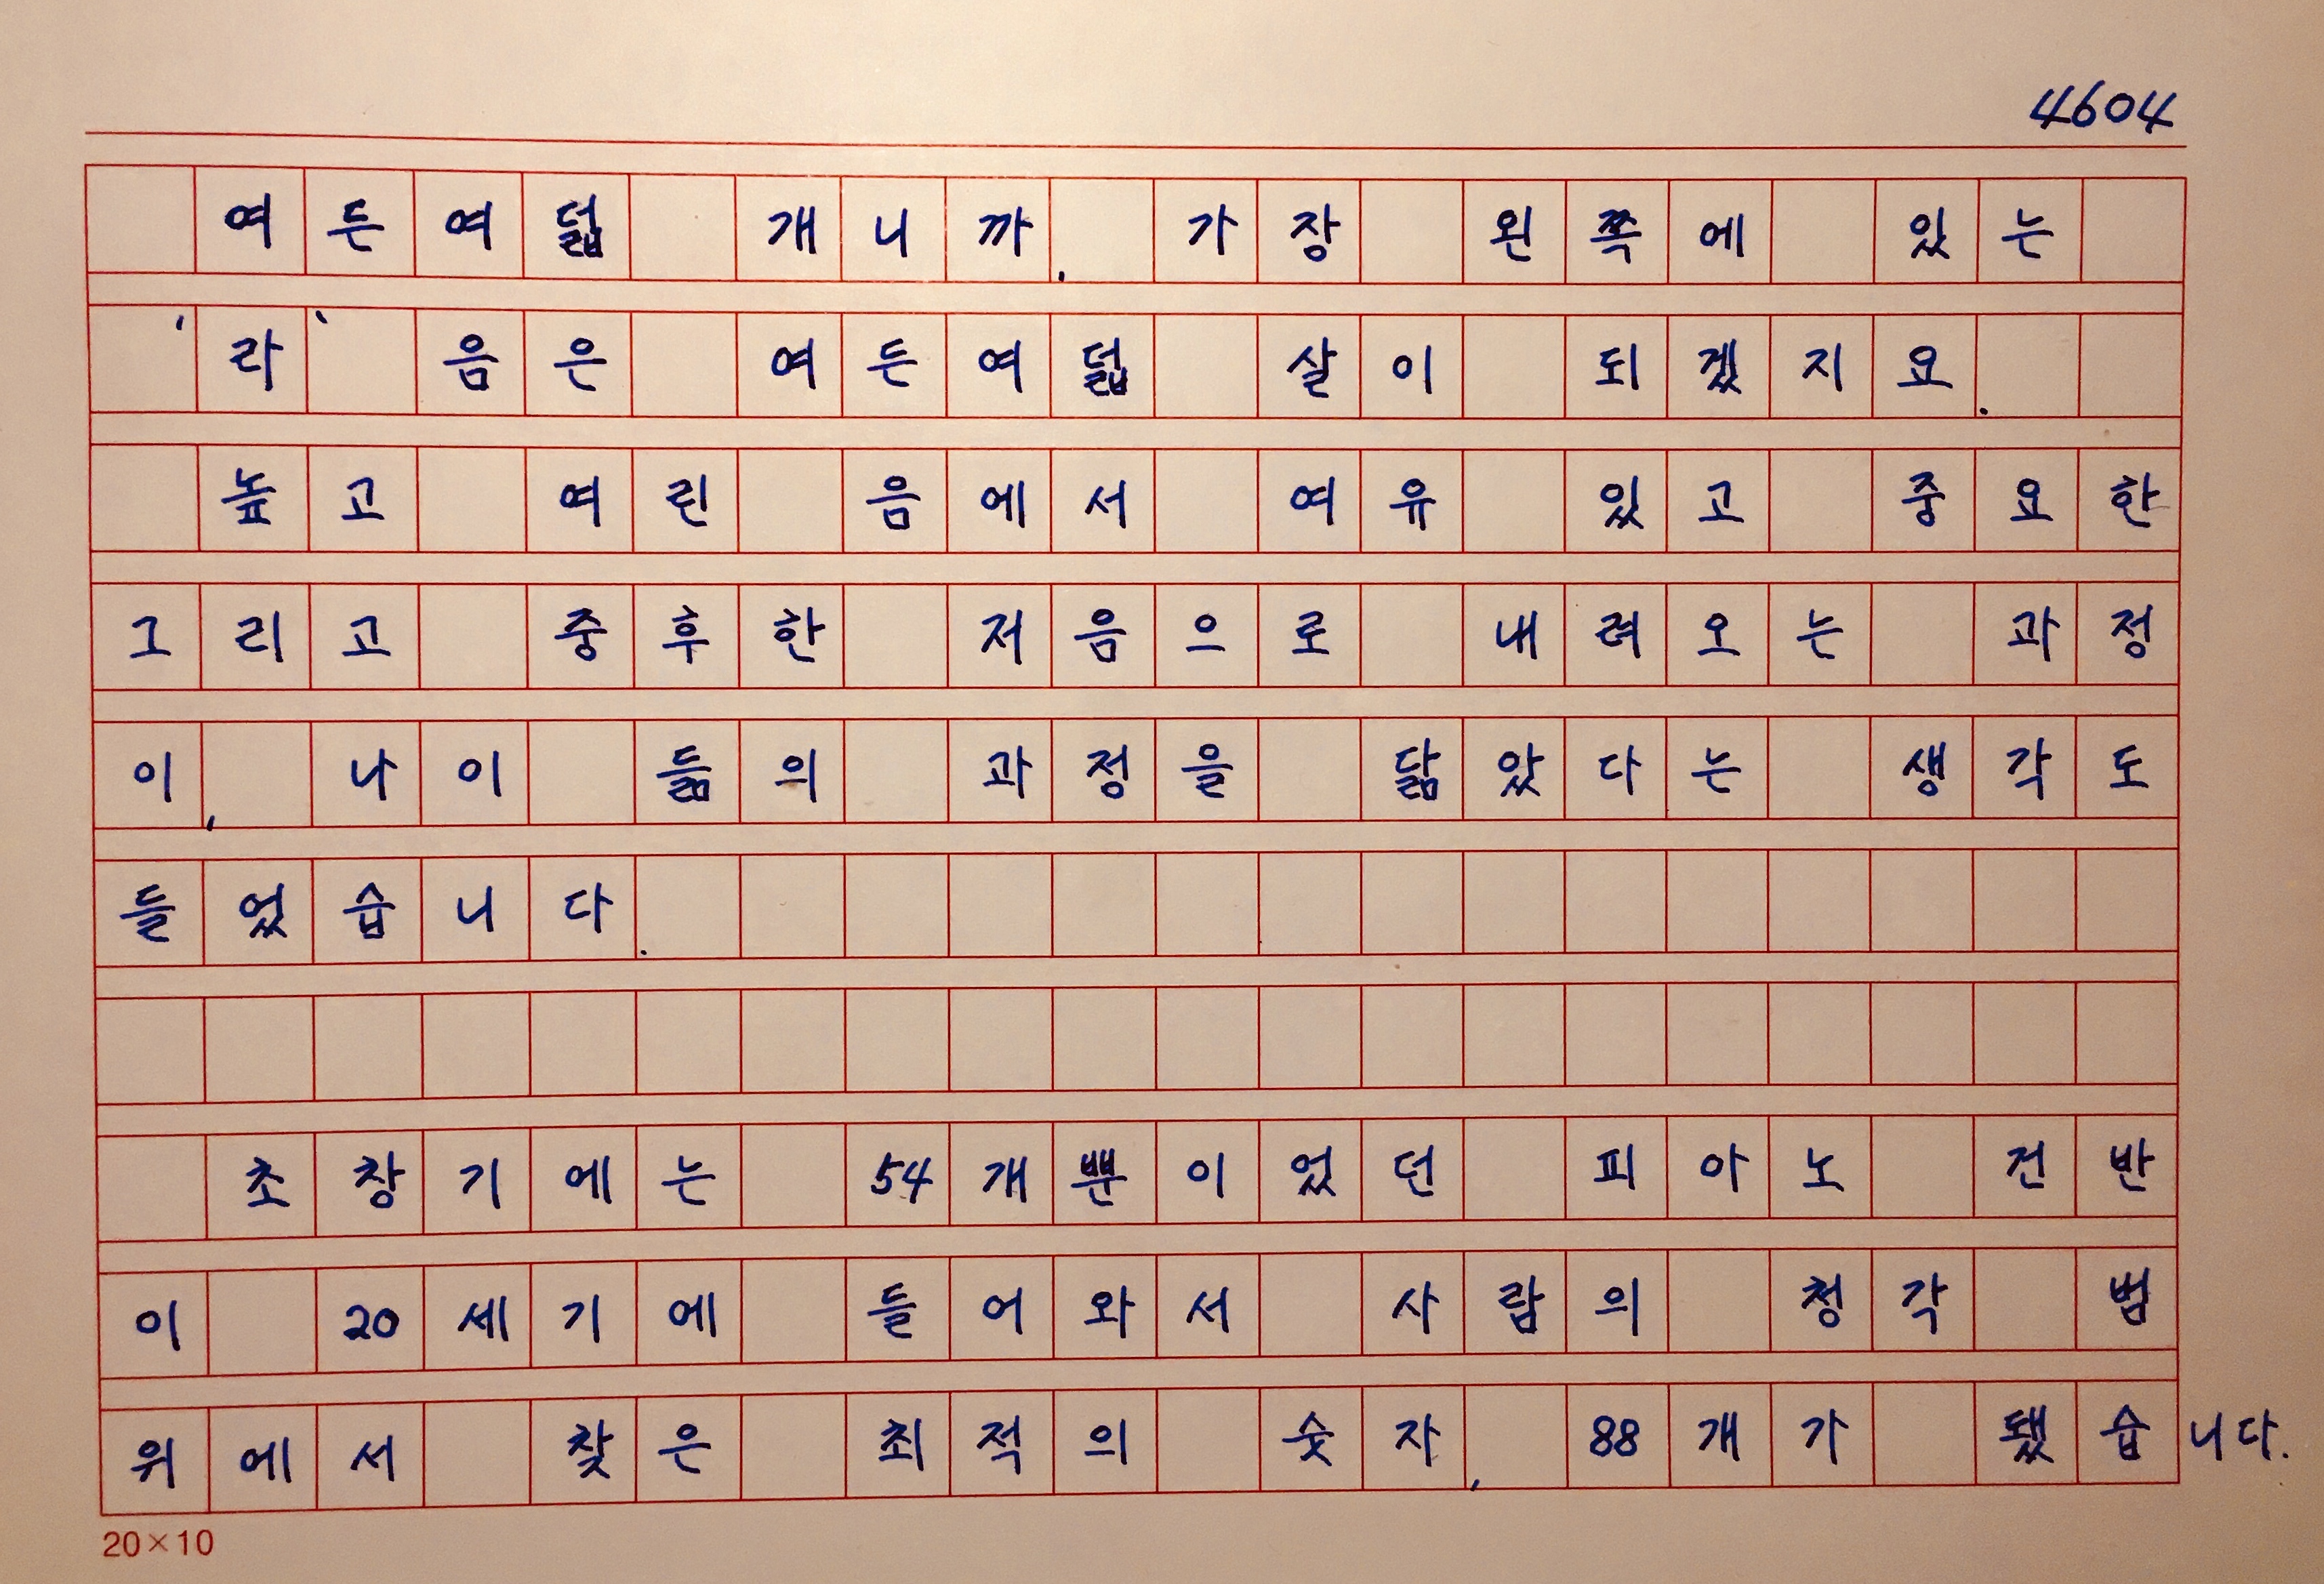 4604
여든여덟 개니까, 가장 왼쪽에 있는
'라' 음은 여든여덟 살이 되겠지요.
높고 여린 음에서 여유 있고 중요한
그리고 중후한 저음으로 내려오는 과정
이, 나이 듦의 과정을 닮았다는 생각도
들었습니다.
초창기에는 54개뿐이었던 피아노 건반
이 20세기에 들어와서 사람의 청각 범
위에서 찾은 최적의 숫자, 88개가 됐습니다.
20×10